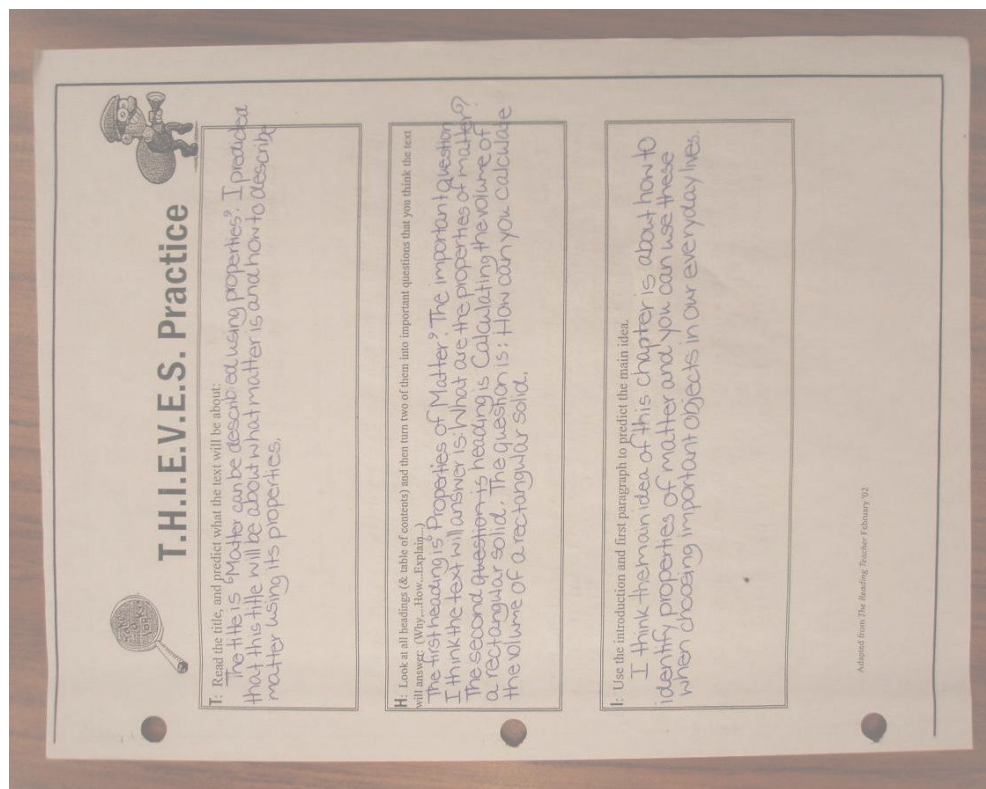 T.H.I.E.V.E.S. Practice
T: Read the title, and predict what the text will be about:
The title is "Matter can be described using properties". I predicted
that this title will be about what matter is and how to describe
matter using its properties.
H: Look at all headings (& table of contents) and then turn two of them into important questions that you think the text
will answer: (Why,...How...Explain...)
The first heading is "Properties of Matter". The important question
I think the text will answer is: What are the properties of matter?
The second question is heading is Calculating the volume of
a rectangular solid. The question is: How can you calculate
the volume of a rectangular solid.
I: Use the introduction and first paragraph to predict the main idea.
I think the main idea of this chapter is about how to
identify properties of matter and you can use these
when choosing important objects in our everyday lives.
Adapted from The Reading Teacher February '02